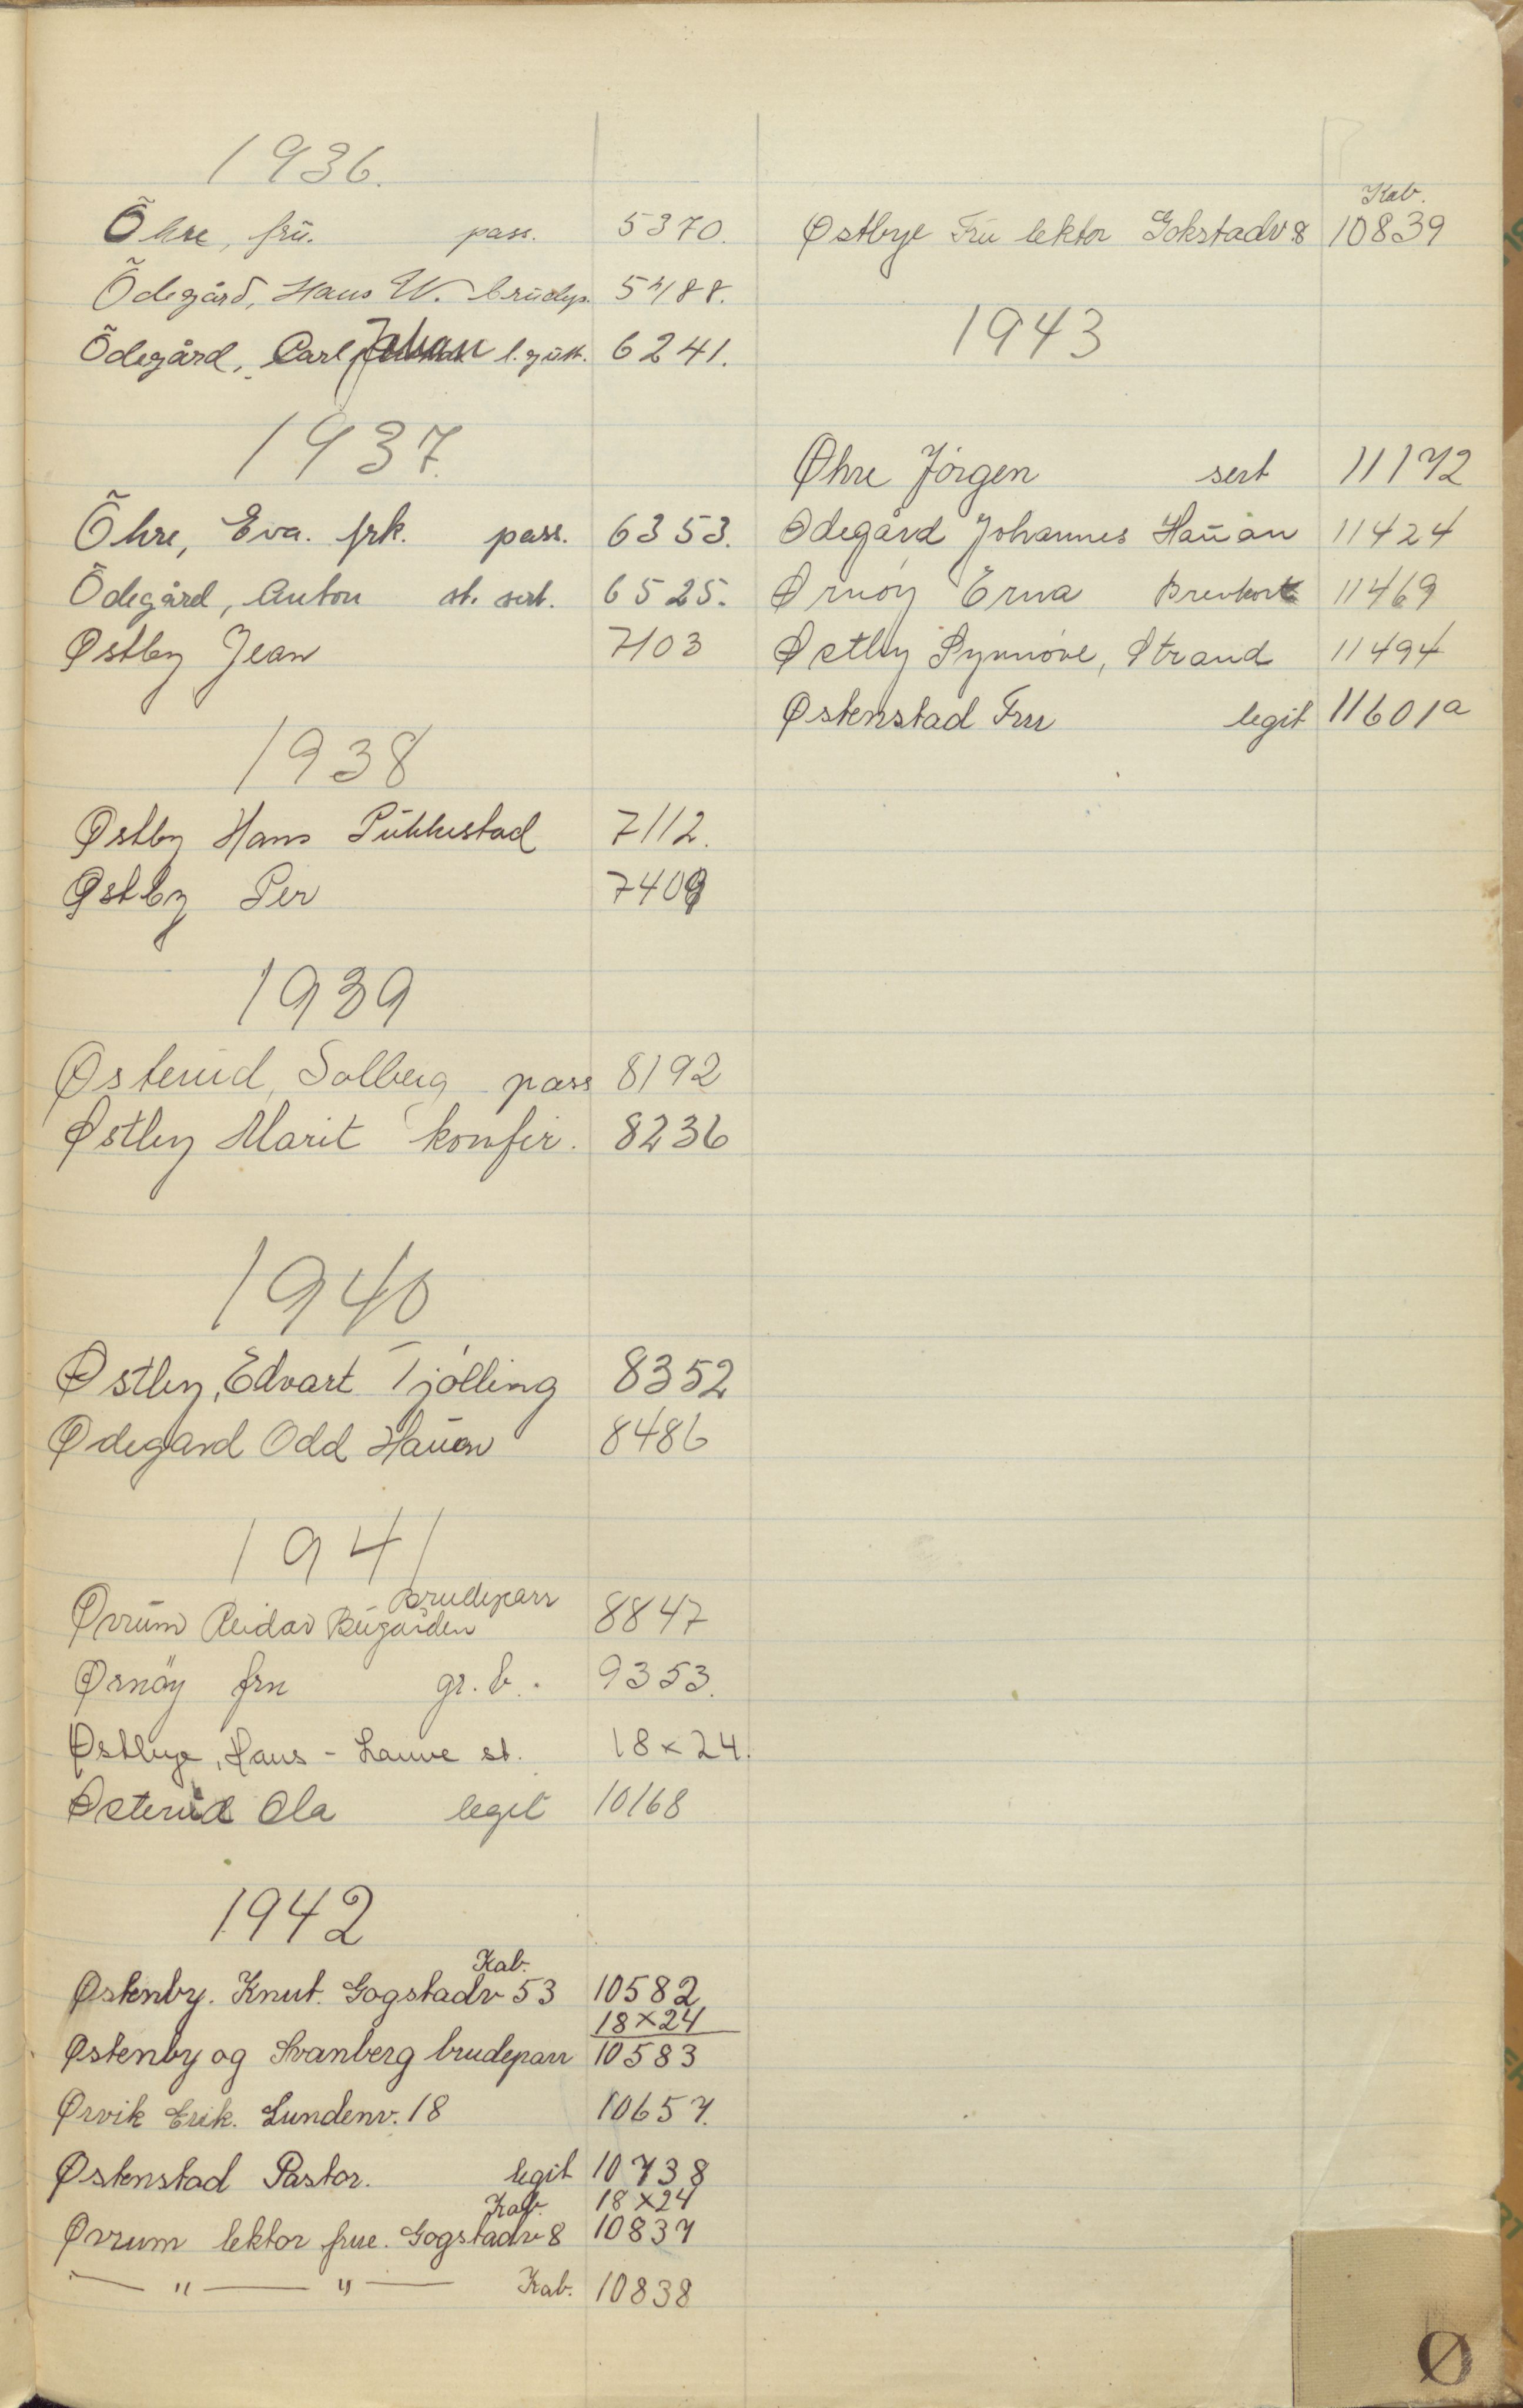 1936.
Õhre, frū. pass. 5370.
Õdegård, Hans W. brūdep. 5788.
Õdegård, Carl Johan l. gūtt. 6241.
1937.
Õhre, Eva. frk. pass. 6353.
Õdegård, Anton st. sert. 6525.
Østby Jean 7103
1938
Østby Hans Pūkkestad 7112.
Østby Per 7409
1939
Østerūd, Solberg pass 8192
Østby Marit konfir. 8236
1940
Østby, Edvart Tjölling 8352
Ødegård Odd Haūan 8486
1941
Brudeparr
Øvrūm Reidar Būgården 8847
Ørnöy fru gr. b. 9353.
Østbye, Hans - Lauve st. 18 x 24.
Østerūd Ola legit 10168
1942
Kab.
Østenby. Knut. Gogstadv 53 10582
18 x 24
Østenby og Svanberg brudeparr 10583
Ørvik Erik. Lundenv. 18 10657.
Østenstad Pastor. legit 10738
Kab. 18 x 24
Øvrum lektor frue. Gogstadv 8 10837
— " — " — Kab. 10838
Kab.
Østbye Frū lektor Gokstadv 8 10839
1943
Øhre Jörgen sert 11172
Ødegård Johannes Haūan 11424
Ørnöy Erna Brevkort 11469
Østby Synnöve, Strand 11494
Østenstad Fru legit 11601a
Ø